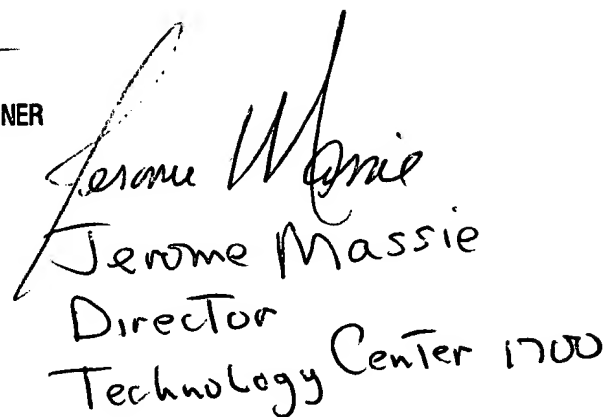 NER
Jerome Massie
Jerome Massie
Director
Technology Center 1700